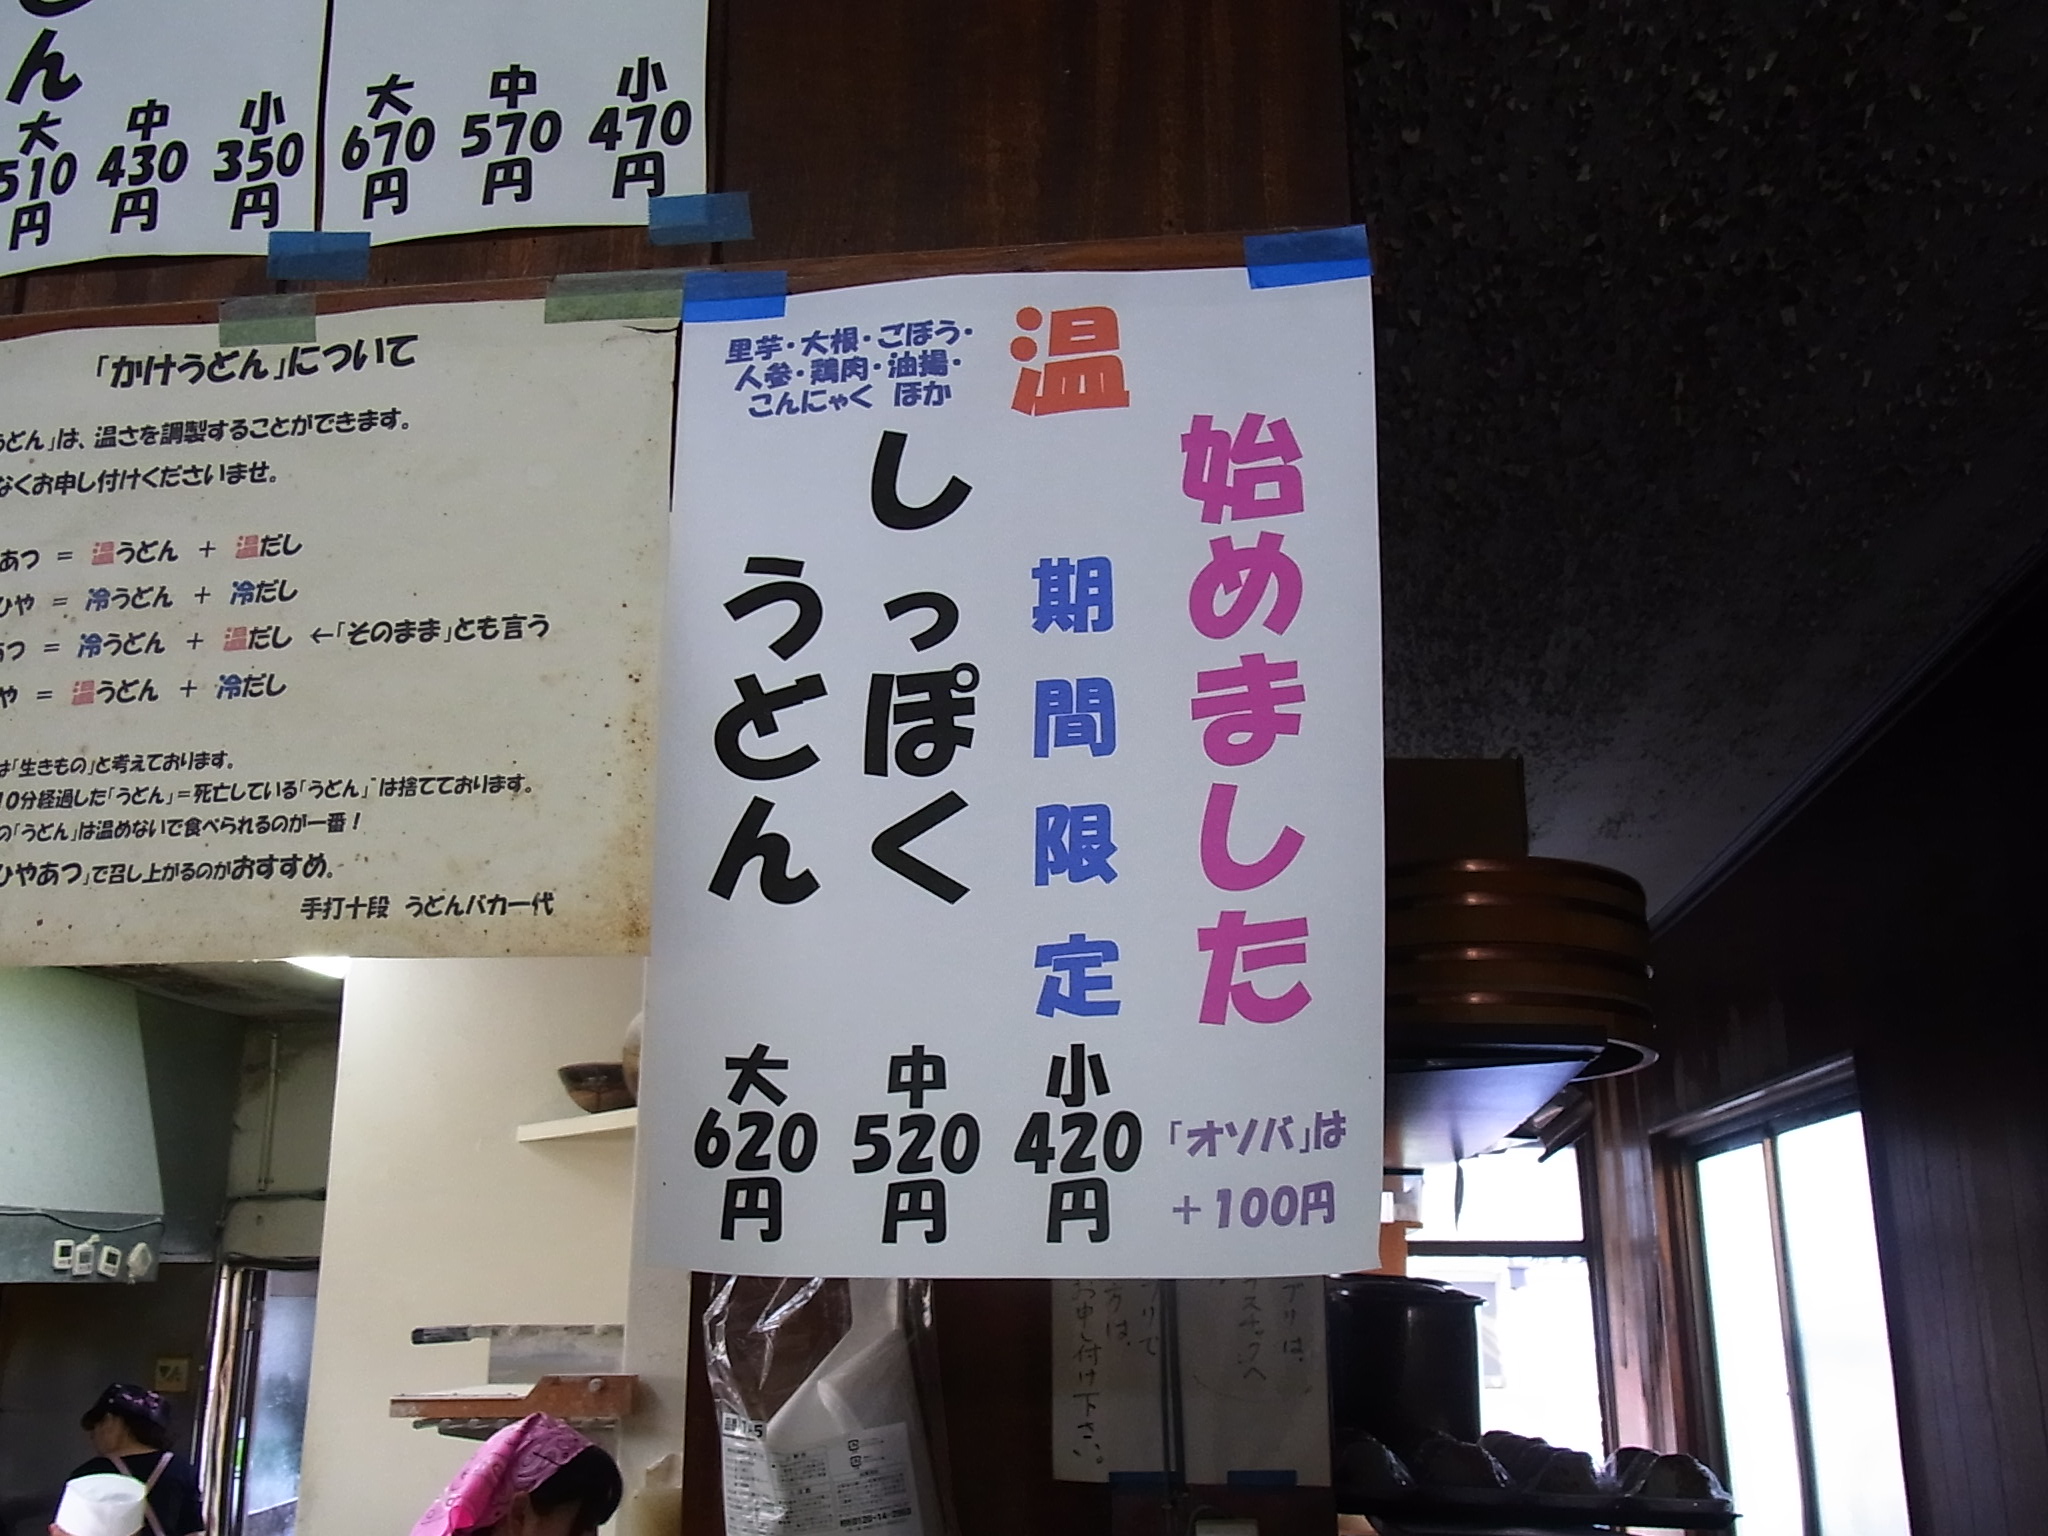 ん
大 中 小
510 430 350
円 円 円
大 中 小
670 570 470
円 円 円
「かけうどん」について
うどん」は、温さを調製することができます。
なくお申し付けくださいませ。
あつ = 温うどん + 温だし
ひや = 冷うどん + 冷だし
あつ = 冷うどん + 温だし ←「そのまま」とも言う
や = 温うどん + 冷だし
は「生きもの」と考えております。
10分経過した「うどん」=死亡している「うどん」は捨てております。
の「うどん」は温めないで食べられるのが一番!
ひやあつ」で召し上がるのがおすすめ。
手打十段 うどんバカ一代
始めました
温
期間限定
里芋・大根・ごぼう・
人参・鶏肉・油揚・
こんにゃく ほか
しっぽく
うどん
小 420円
中 520円
大 620円
「オソバ」は
+100円
プリは、
方は、
お申し付け下さい。